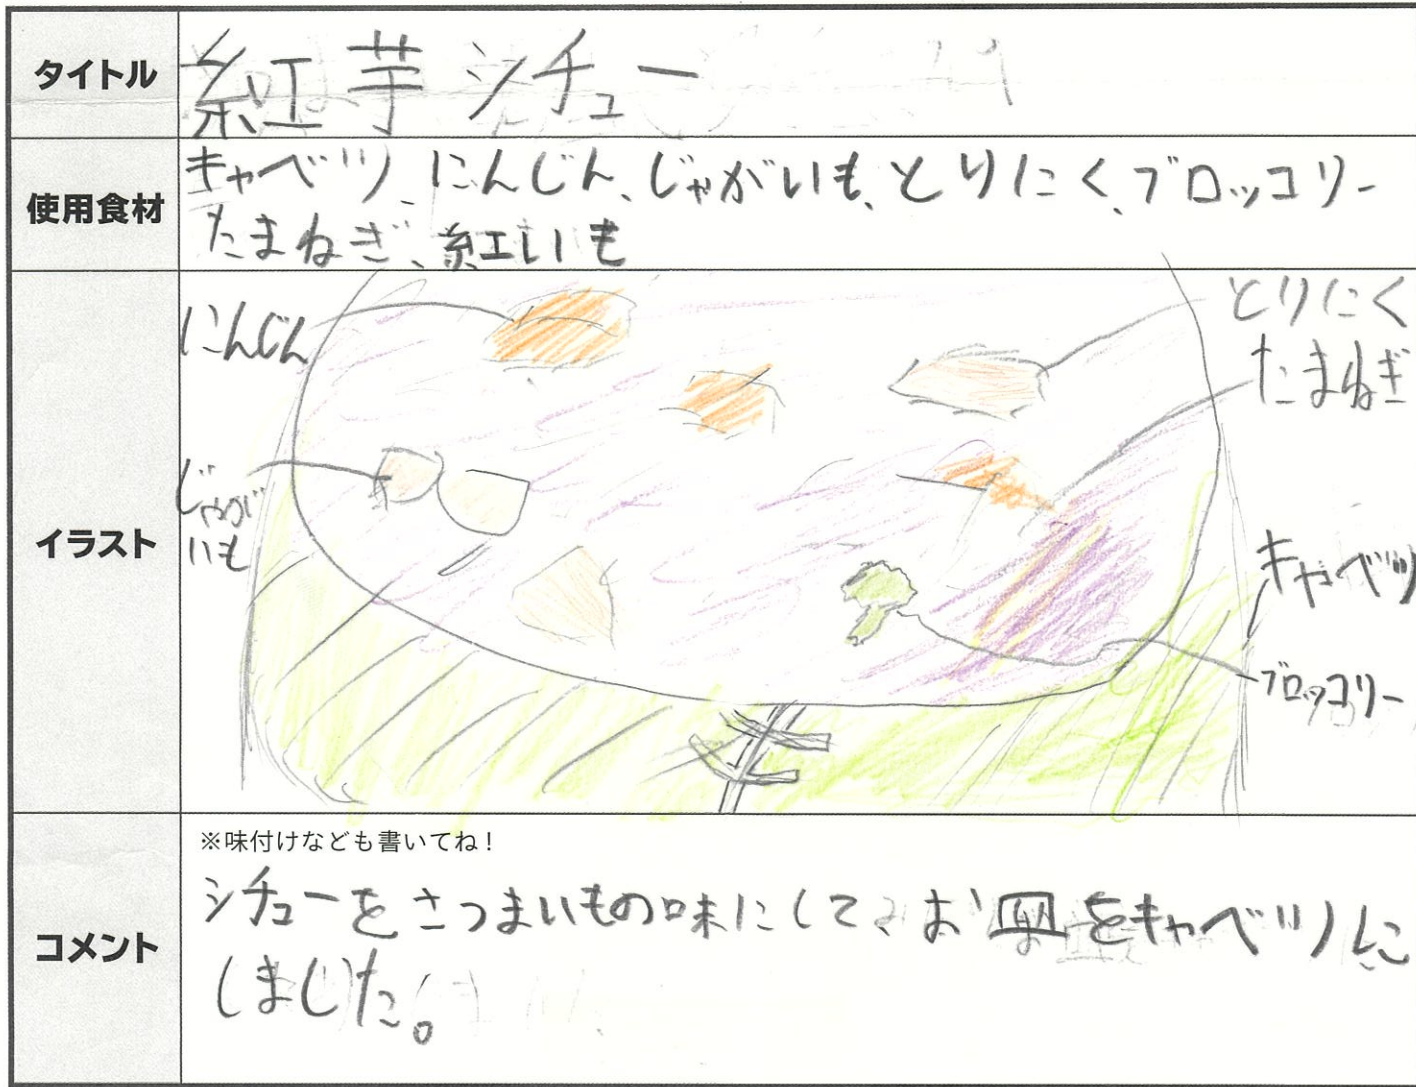 タイトル
紅芋シチュー
使用食材
キャベツ、にんじん、じゃがいも、とりにく、ブロッコリー
たまねぎ、紅いも
イラスト
にんじん
とりにく
たまねぎ
じゃが
いも
キャベツ
ブロッコリー
コメント
※味付けなども書いてね!
シチューをさつまいもの味にして、お皿をキャベツに
しました。